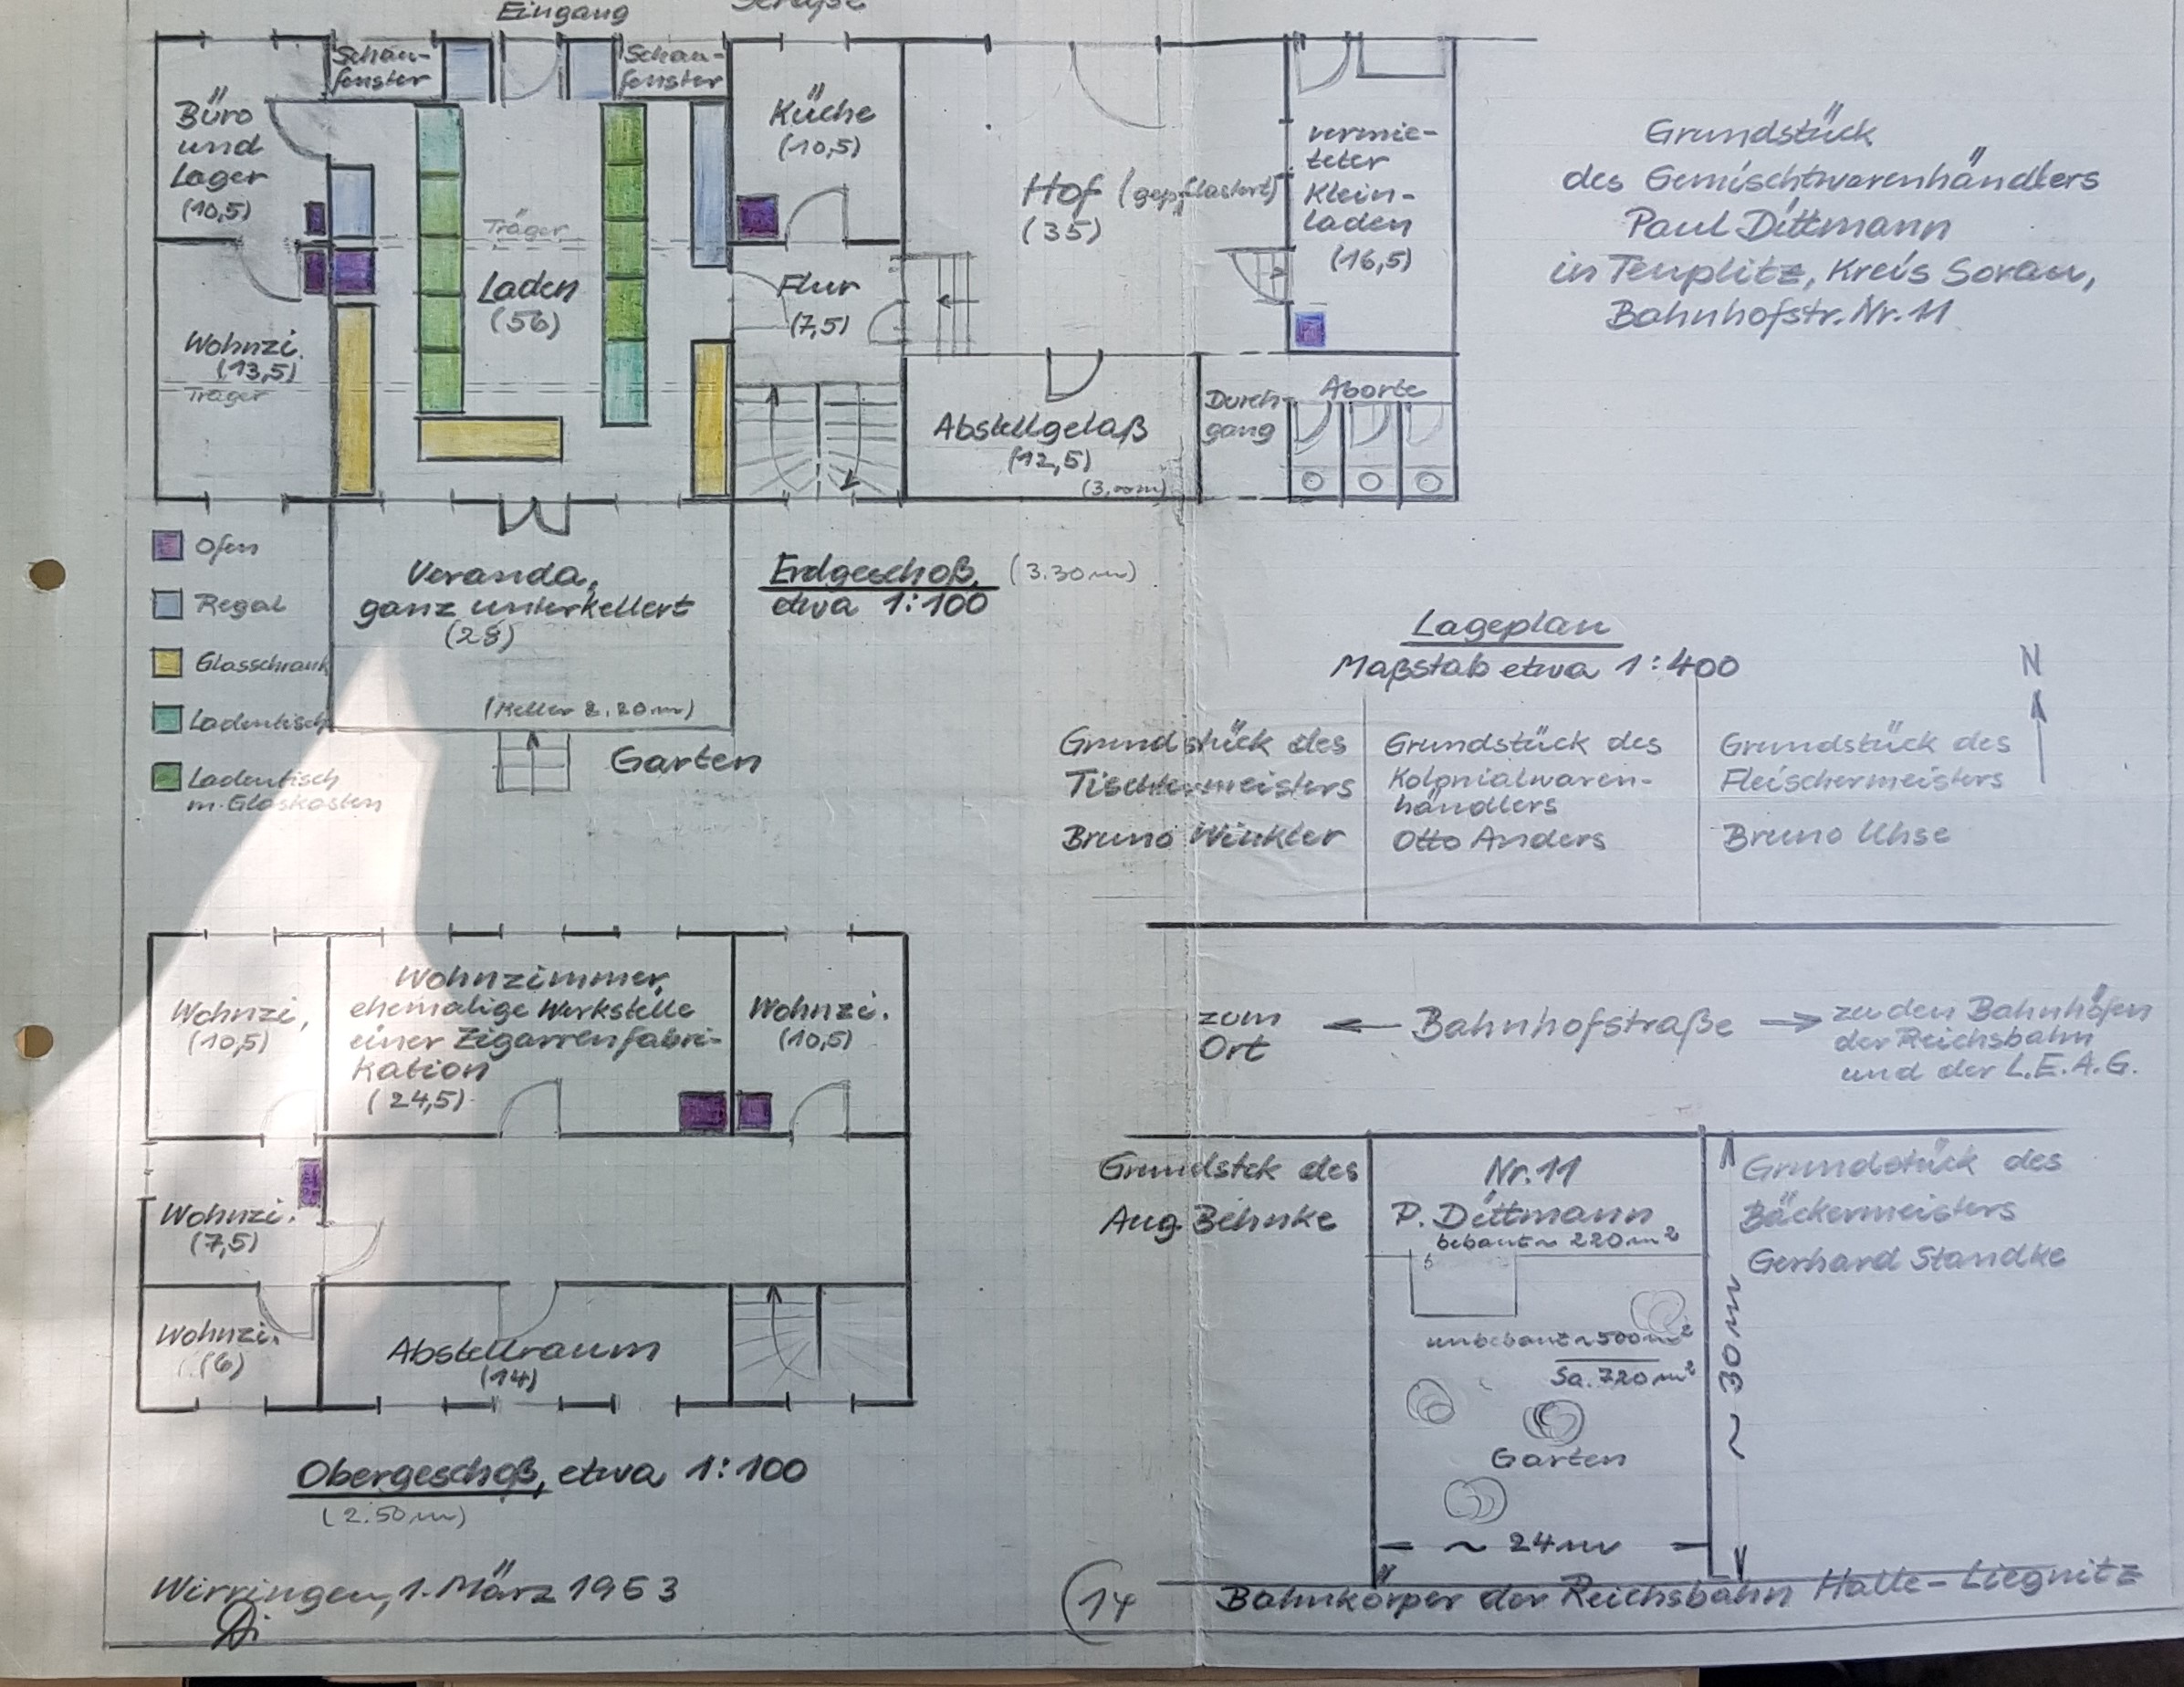 Eingang
Straße
Schau-
fenster
Schau-
fenster
Büro
und
Lager
(10,5)
Küche
(10,5)
Hof (gepflastert)
(35)
vermie-
teter
Klein-
laden
(16,5)
Träger
Laden
(56)
Flur
(7,5)
Wohnzi.
(13,5)
Träger
Abstellgelaß
(12,5)
(3,00m)
Durch-
gang
Aborte
Grundstück
des Gemischtwarenhändlers
Paul Dittmann
in Teuplitz, Kreis Sorau,
Bahnhofstr. Nr. 11
Ofen
Regal
Glasschrank
Ladentisch
Ladentisch
m. Glaskasten
Veranda,
ganz unterkellert
(28)
(Keller 2.20m)
Garten
Erdgeschoß, (3.30m)
etwa 1:100
Lageplan
Maßstab etwa 1:400
N
Grundstück des
Tischlermeisters
Bruno Winkler
Grundstück des
Kolonialwaren-
händlers
Otto Anders
Grundstück des
Fleischermeisters
Bruno Uhse
zum
Ort
Bahnhofstraße
zu den Bahnhöfen
der Reichsbahn
und der L.E.A.G.
Wohnzi.
(10,5)
Wohnzimmer,
ehemalige Werkstelle
einer Zigarrenfabri-
kation
(24,5)
Wohnzi.
(10,5)
Wohnzi.
(7,5)
Wohnzi.
(6)
Abstellraum
(14)
Obergeschoß, etwa 1:100
(2.50m)
Grundstck des
Aug. Behnke
Nr. 11
P. Dittmann
bebaut ~ 220 m²
unbebaut ~ 500 m²
Sa. 720 m²
Garten
~ 24 m
~ 30 m
Grundstück des
Bäckermeisters
Gerhard Standke
Bahnkörper der Reichsbahn Halle-Liegnitz
Wirringen, 1. März 1963
Di
14